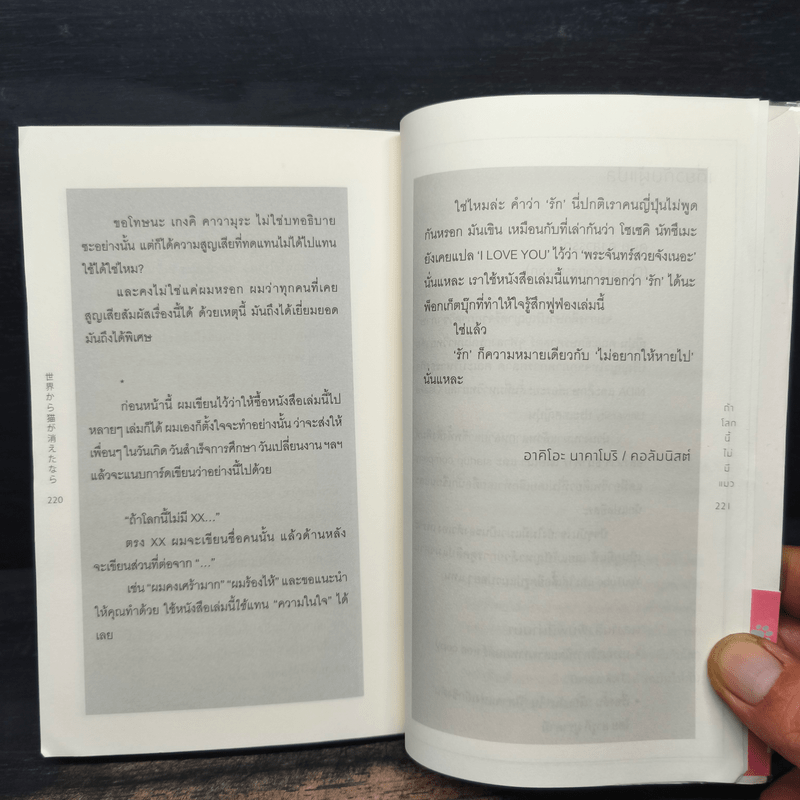 ขอโทษนะ เกงคิ คาวามุระ ไม่ใช่บทอธิบาย
ซะอย่างนั้น แต่ก็ได้ความสูญเสียที่ทดแทนไม่ได้ไปแทน
ใช้ได้ใช่ไหม?
และคงไม่ใช่แค่ผมหรอก ผมว่าทุกคนที่เคย
สูญเสียสัมผัสเรื่องนี้ได้ ด้วยเหตุนี้ มันถึงได้เยี่ยมยอด
มันถึงได้พิเศษ
*
ก่อนหน้านี้ ผมเขียนไว้ว่าให้ซื้อหนังสือเล่มนี้ไป
หลายๆ เล่มก็ได้ ผมเองก็ตั้งใจจะทำอย่างนั้น ว่าจะส่งให้
เพื่อนๆ ในวันเกิด วันสำเร็จการศึกษา วันเปลี่ยนงาน ฯลฯ
แล้วจะแนบการ์ดเขียนว่าอย่างนี้ไปด้วย
“ถ้าโลกนี้ไม่มี XX...”
ตรง XX ผมจะเขียนชื่อคนนั้น แล้วด้านหลัง
จะเขียนส่วนที่ต่อจาก “...”
เช่น “ผมคงเศร้ามาก” “ผมร้องไห้” และขอแนะนำ
ให้คุณทำด้วย ใช้หนังสือเล่มนี้ใช้แทน “ความในใจ” ได้
เลย
世界から猫が消えたなら
220
ใช่ไหมล่ะ คำว่า ‘รัก’ นี่ปกติเราคนญี่ปุ่นไม่พูด
กันหรอก มันเขิน เหมือนกับที่เล่ากันว่า โซเซคิ นัทซึเมะ
ยังเคยแปล ‘I LOVE YOU’ ไว้ว่า ‘พระจันทร์สวยจังเนอะ’
นั่นแหละ เราใช้หนังสือเล่มนี้แทนการบอกว่า ‘รัก’ ได้นะ
พ็อกเก็ตบุ๊กที่ทำให้ใจรู้สึกฟูฟ่องเล่มนี้
ใช่แล้ว
‘รัก’ ก็ความหมายเดียวกับ ‘ไม่อยากให้หายไป’
นั่นแหละ
อาคิโอะ นาคาโมริ / คอลัมนิสต์
ถ้า
โลก
นี้
ไม่
มี
แมว
221